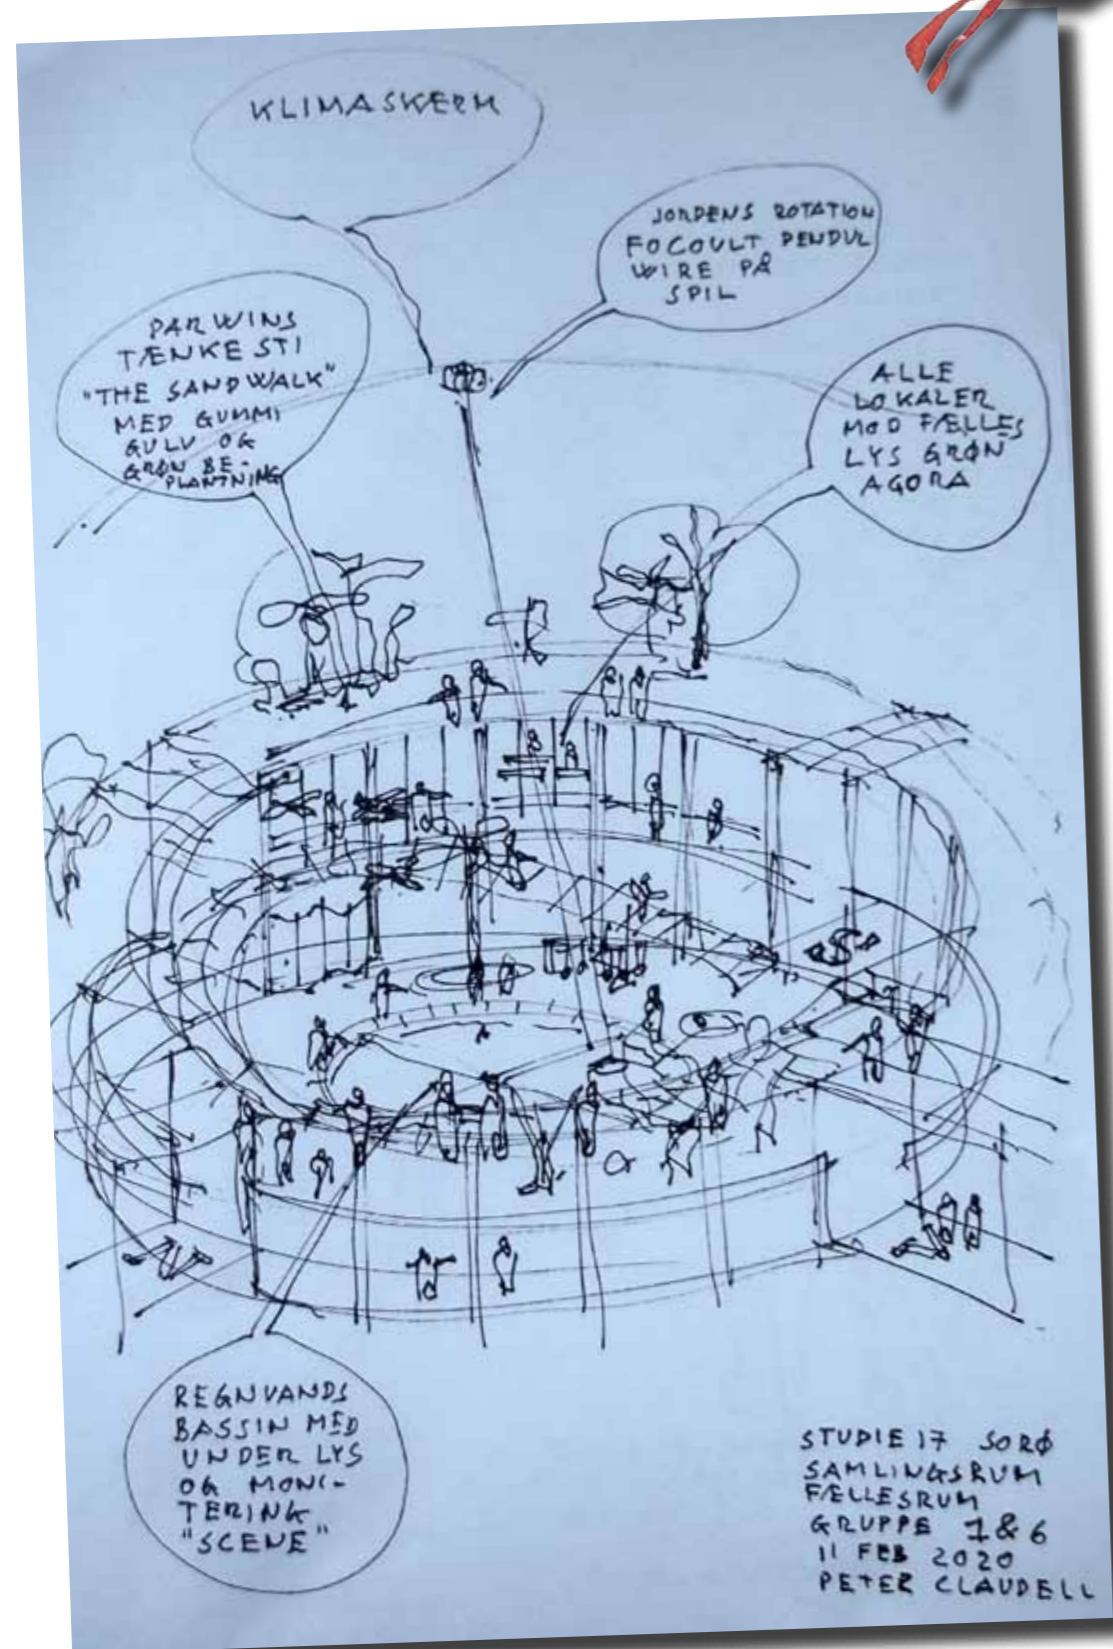 KLIMASKERM
JORDENS ROTATION
FOCOULT PENDUL
WIRE PÅ
SPIL
DARWINS
TÆNKE STI
"THE SANDWALK"
MED GUMMI
GULV OG
GRØN BE-
PLANTNING
ALLE
LOKALER
MOD FÆLLES
LYS GRØN
AGORA
REGNVANDS
BASSIN MED
UNDER LYS
OG MONI-
TERING
"SCENE"
STUDIE 17 SORØ
SAMLINGSRUM
FÆLLESRUM
GRUPPE 1 & 6
11 FEB 2020
PETER CLAUDELL